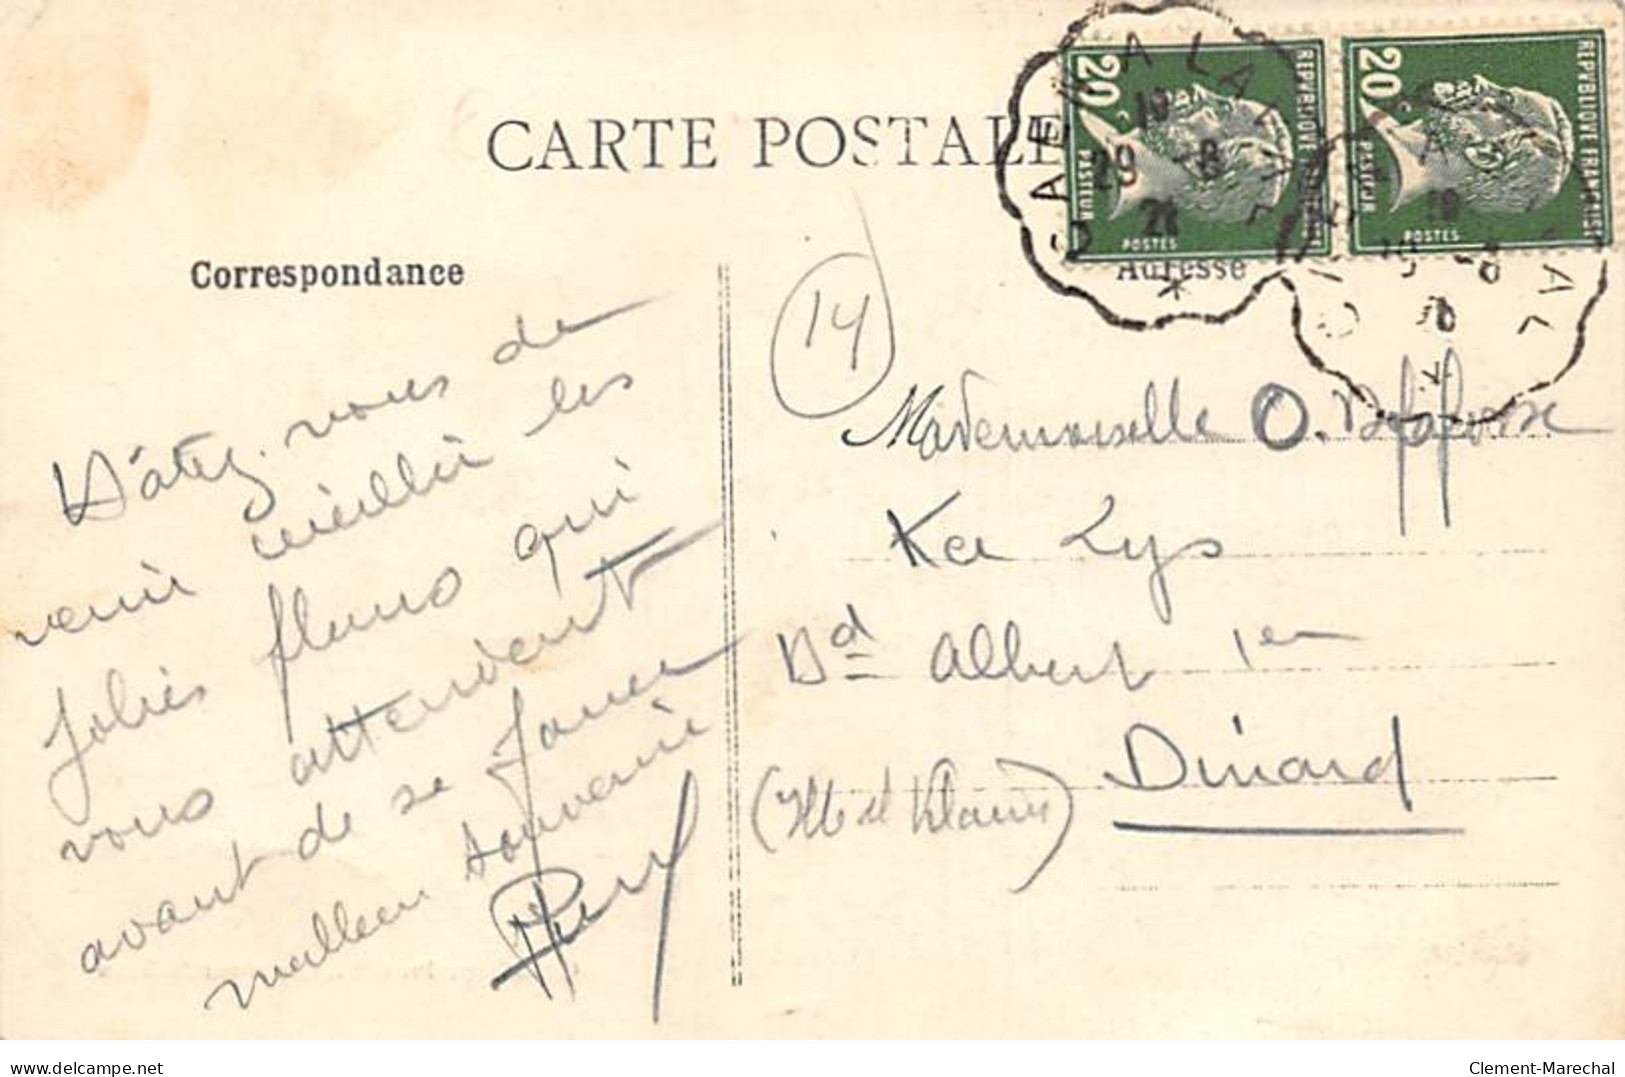 CARTE POSTALE
Correspondance
Hâtez-vous de
venir cueillir les
jolies fleurs qui
vous attendent
avant de se faner
meilleur souvenir
14
Adresse
Mademoiselle O.
Ker Lys
Bd Albert 1er
Dinard
(Ille et Vilaine)
20
REPUBLIQUE FRANÇAISE
PASTEUR
POSTES
29 -8
20
REPUBLIQUE FRANÇAISE
PASTEUR
POSTES
delcampe.net
Clement-Marechal